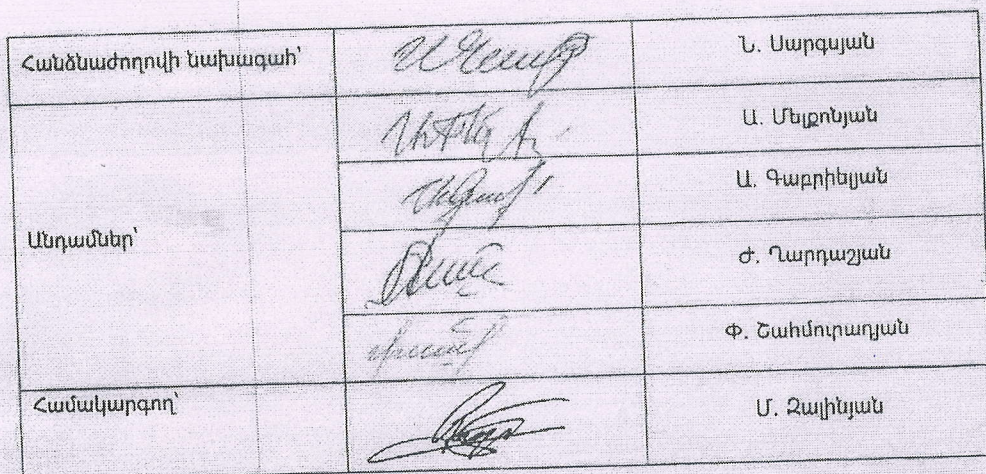 Հանձնաժողովի նախագահ՝ Ն. Սարգսյան
Ա. Մելքոնյան
Ա. Գաբրիելյան
Անդամներ՝
Ժ. Ղարդաշյան
Փ. Շահմուրադյան
Համակարգող՝ Մ. Չալինյան